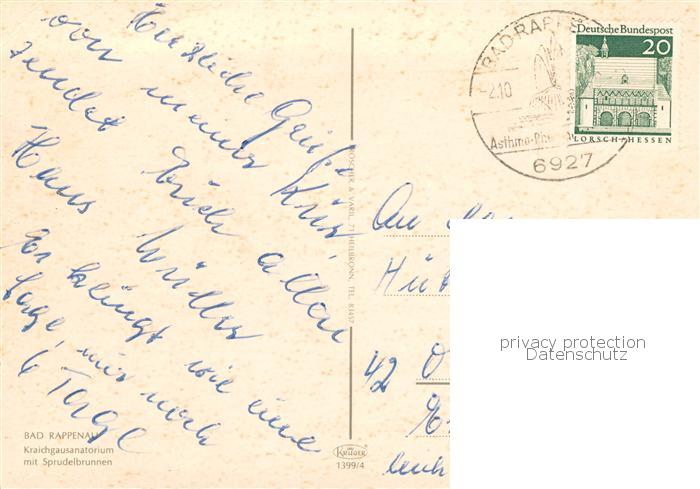 Herzliche Grüße
von meiner Kur
sendet Euch allen
Hans Müller
Es klingt wie eine
Sage, nur noch
6 Tage
BAD RAPPENAU
Kraichgausanatorium
mit Sprudelbrunnen
LÖSCHER & VARN, 71 HEILBRONN, TEL. 83457
KRÜGER
1399/4
BAD RAPPE
2.10
Asthma-Rh
6927
Deutsche Bundespost
20
LORSCH·HESSEN
An
Hüt
42 O
privacy protection
Datenschutz